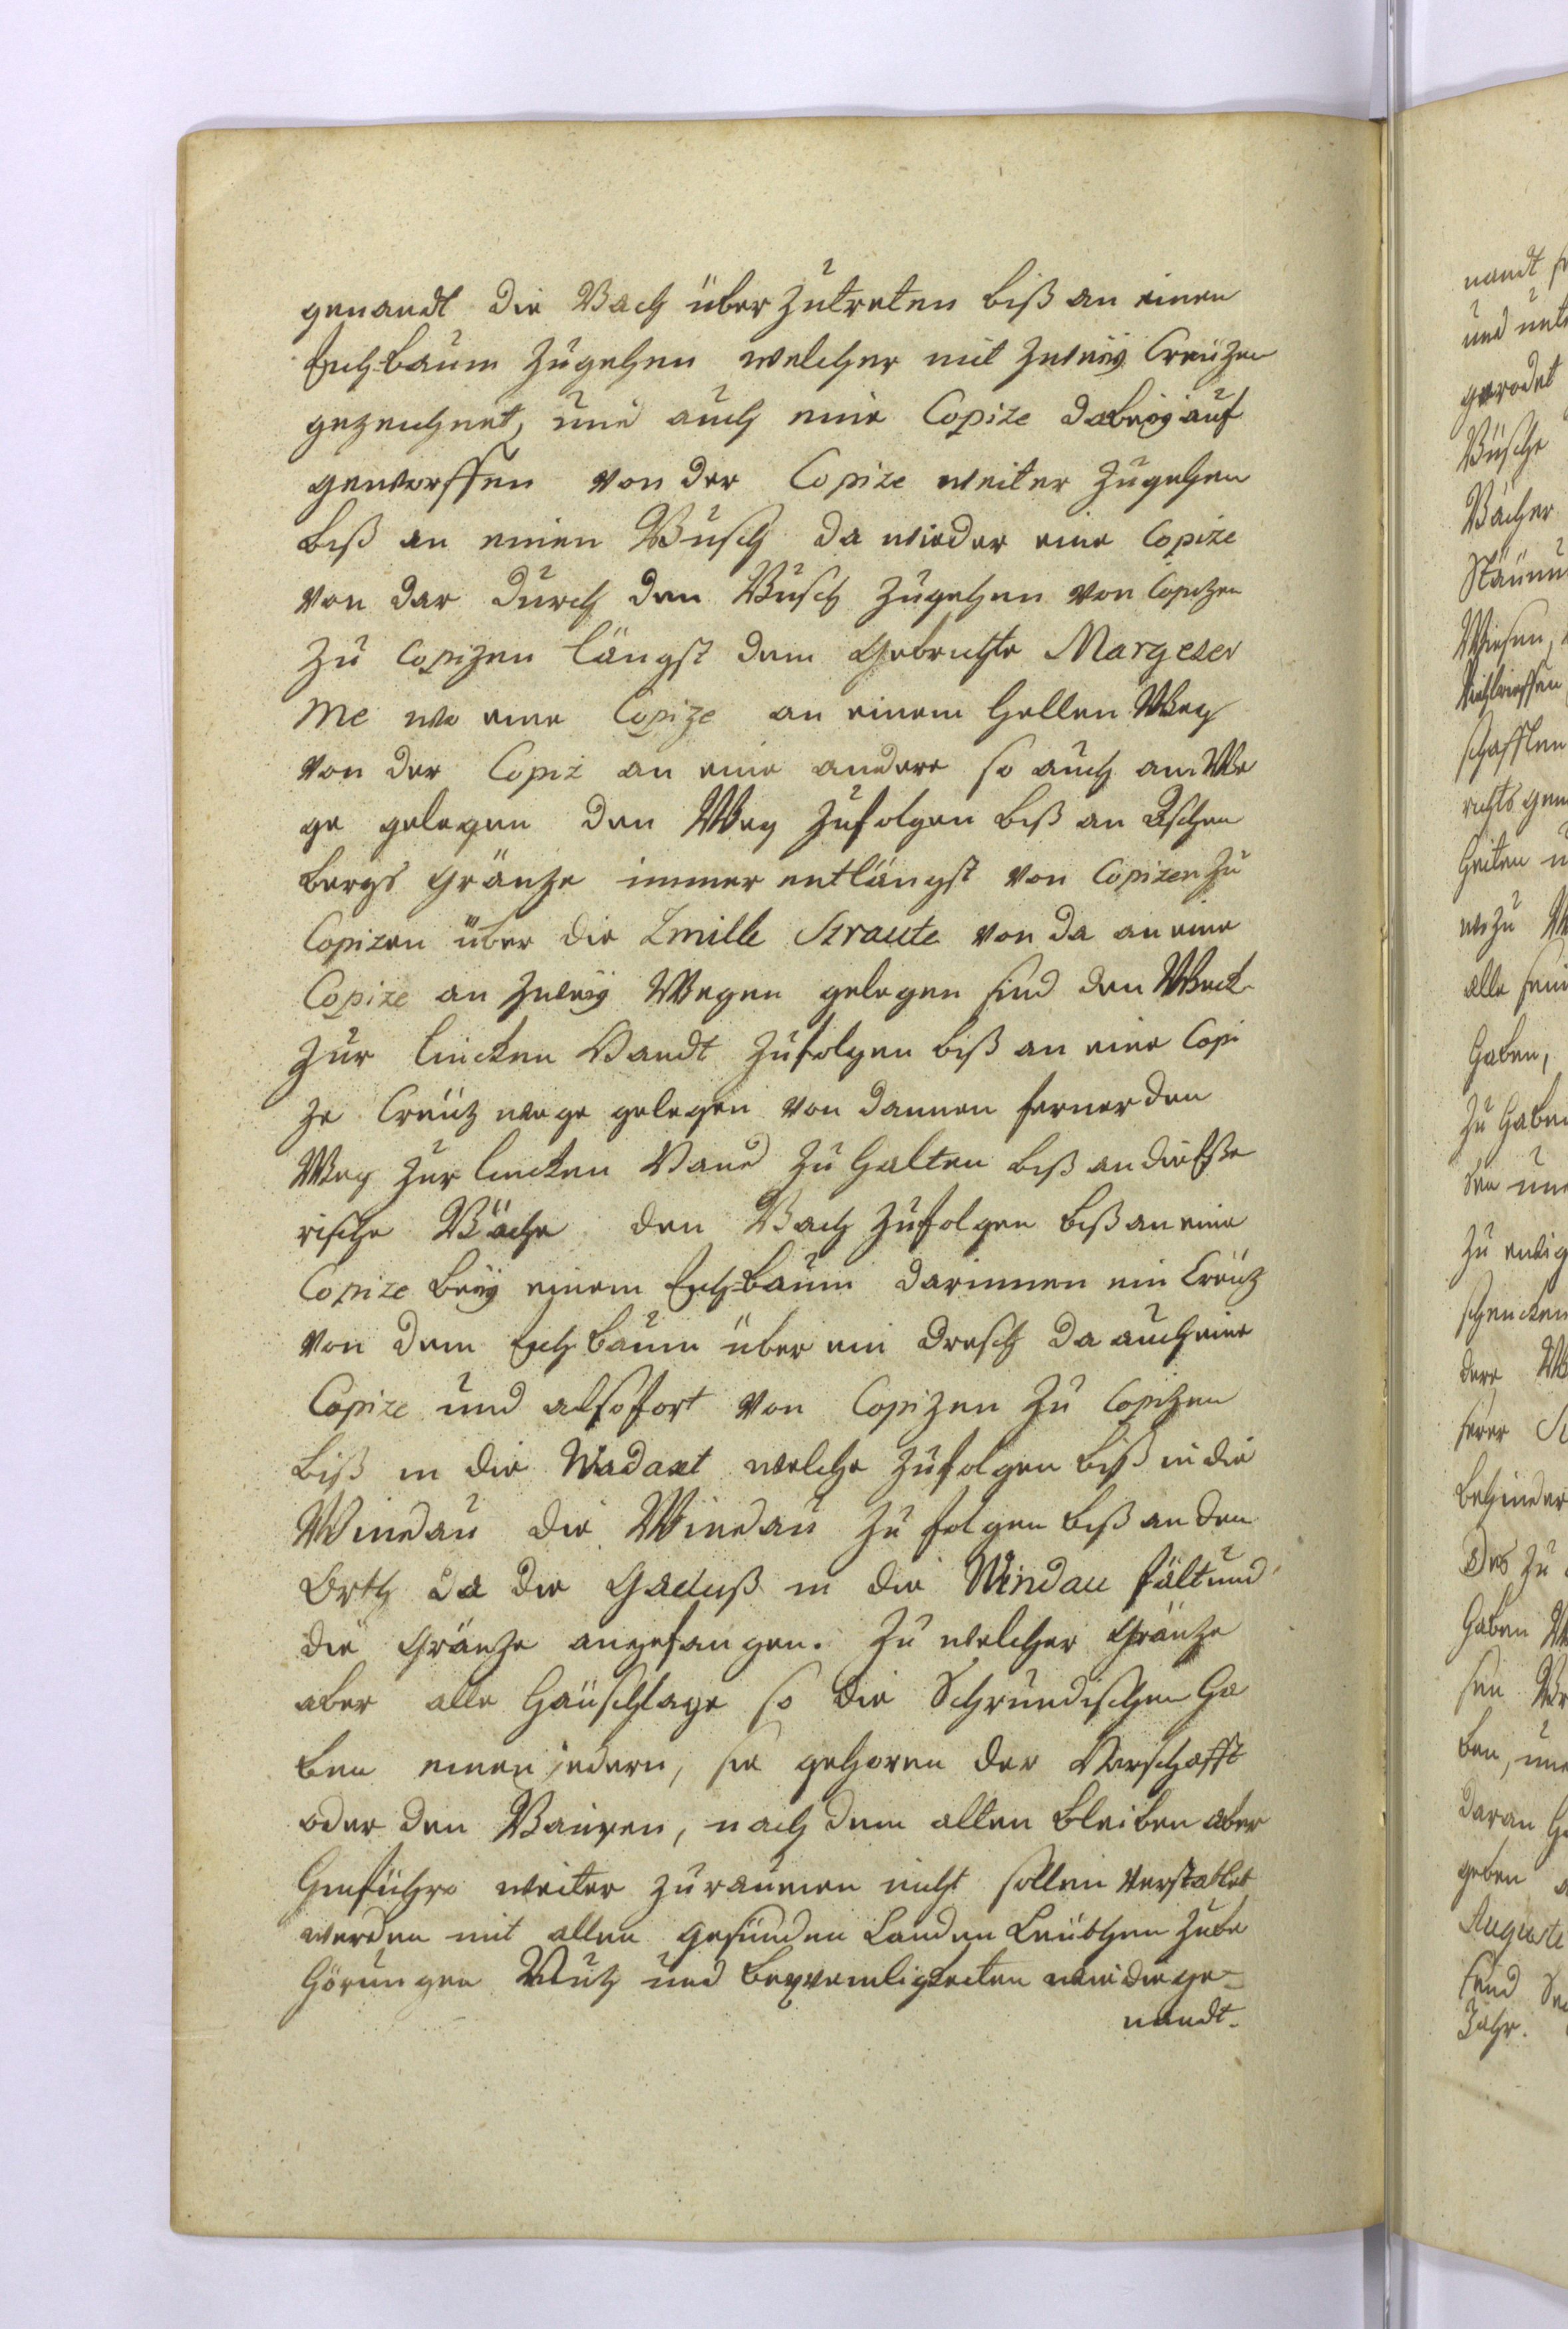 genandt die Bach über zutreten biß an einen
Eichbaum zugehen welcher mit zweiÿ Creutzen
gezeichnet, und auch eine Copize dabeÿ auf
geworffen von der Copize weiter zugehen
biß an einen Busch da wieder eine Copize
von dar durch den Busch zugehen von Copizen
zu Copizen längst dem Gebrüchte Margeser
me wo eine Copize an einem hellen Weg
von der Copiz an eine andere so auch am We
ge gelegen den Weg zufolgen biß an Aschen
bergs Gräntze immer entlängst von Copizen zu
Copizen über die Smille Straute von da an eine
Copize an zweÿ Wegen gelegen sind den Weck
zur lincken Handt zufolgen biß an eine Copi
ze Creutz wege gelegen von dannen ferner den
Weg zur lincken Hand zu halten biß an die
rische Bäche den Bach zufolgen biß an eine
Copize beÿ einem Eichbaum darinnen ein Creutz
von dem Eichbaum über ein Dresch da auch eine
Copize und alsofort von Copizen zu Copizen
biß in die Wadaxt welche zufolgen biß in die
Windau die Windau zu folgen biß an den
Orth da die Gaduß in die Windau fält und
die Gräntze angefangen. Zu welcher Gräntze
aber alle Häuschlage so die Schrundischen ha
ben einen jedern, sie gehoren der Herschafft
oder den Bauren, nach dem alten bleiben aber
hinführo weiter zuraumen nicht sollen verstattet
werden mit allen gesünden Landen Leuthen zube
hörungen Nutz und bequemligkeiten wie die ge-
nandt.
nandt
und
gerodet
Büsche
Bächer
Wiesen,
schafften
rechts
heiten
wozu
alle
haben,
zu haben
zu ewig
schencken
dere
ferer
behinder
des zu
haben
ben, und
daran
geben
Auguste
Jahr.